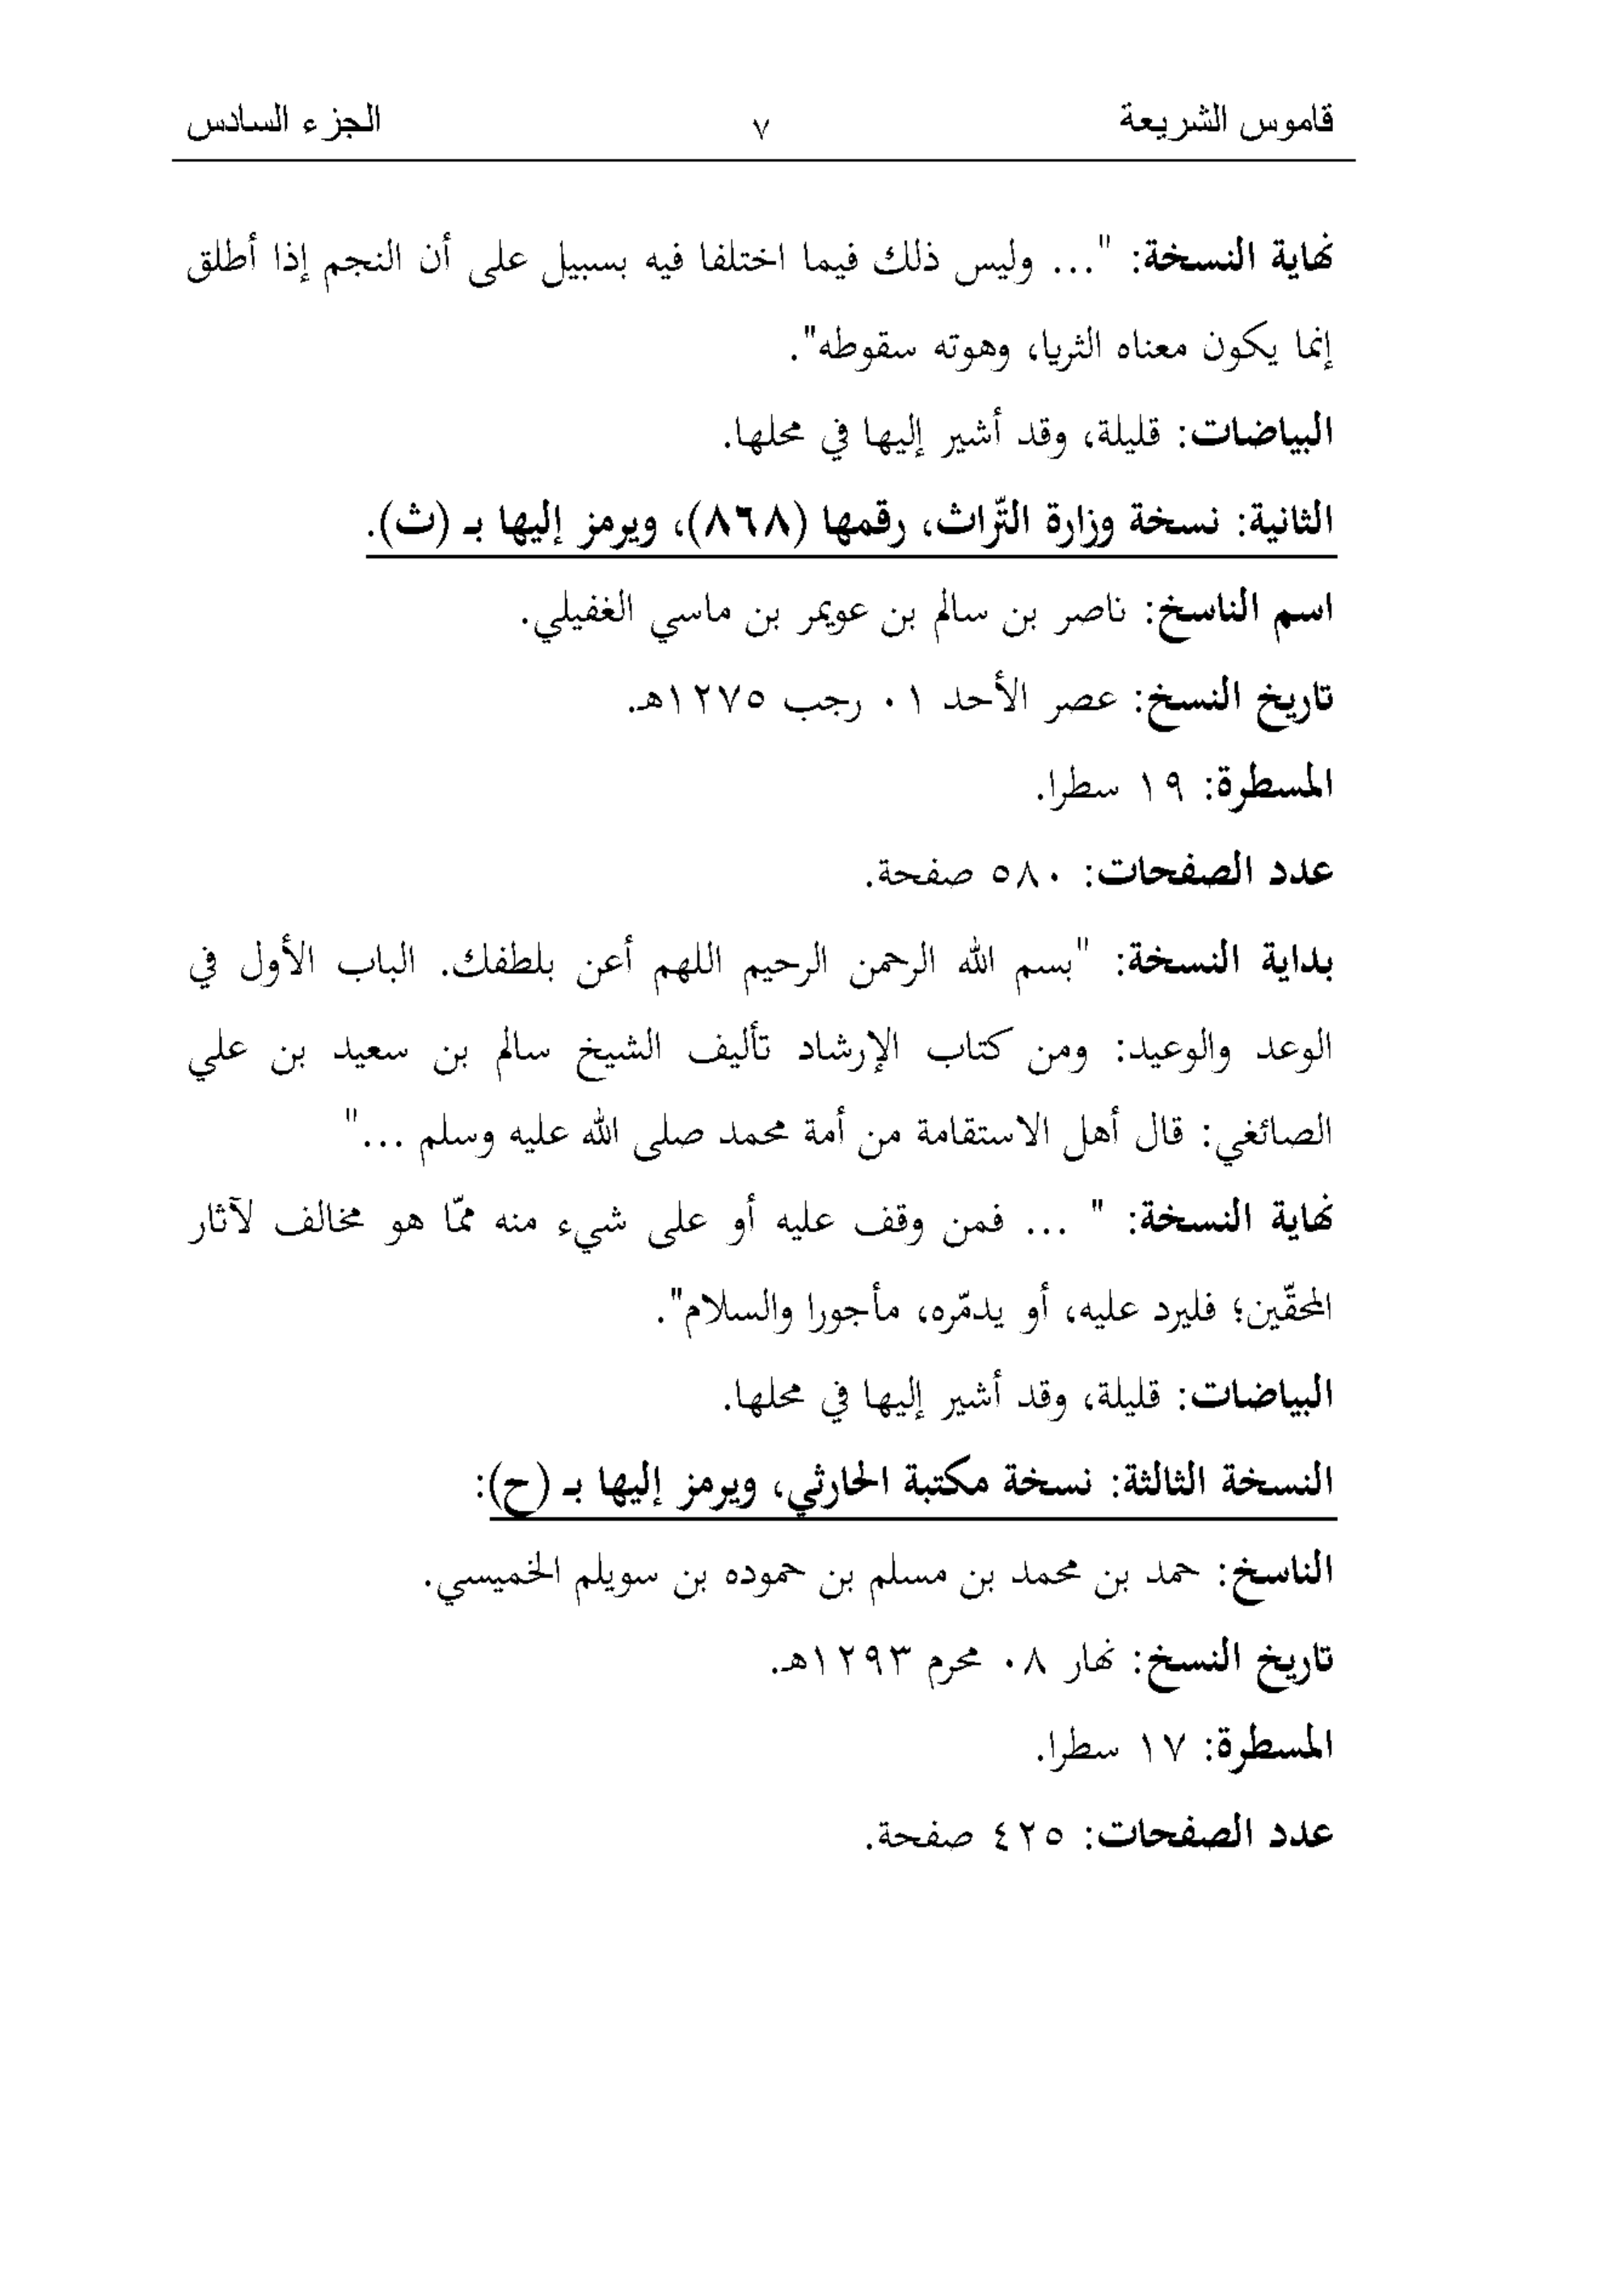 قاموس الشريعة ٧ الجزء السادس
نهاية النسخة: "... وليس ذلك فيما اختلفا فيه بسبيل على أن النجم إذا أطلق
إنما يكون معناه الثريا، وهوته سقوطه".
البياضات: قليلة، وقد أشير إليها في محلها.
الثانية: نسخة وزارة التّراث، رقمها (٨٦٨)، ويرمز إليها بـ (ث).
اسم الناسخ: ناصر بن سالم بن عويمر بن ماسي الغفيلي.
تاريخ النسخ: عصر الأحد ٠١ رجب ١٢٧٥هـ.
المسطرة: ١٩ سطرا.
عدد الصفحات: ٥٨٠ صفحة.
بداية النسخة: "بسم الله الرحمن الرحيم اللهم أعن بلطفك. الباب الأول في
الوعد والوعيد: ومن كتاب الإرشاد تأليف الشيخ سالم بن سعيد بن علي
الصائغي: قال أهل الاستقامة من أمة محمد صلى الله عليه وسلم ..."
نهاية النسخة: " ... فمن وقف عليه أو على شيء منه ممّا هو مخالف لآثار
المحقّين؛ فليرد عليه، أو يدمّره، مأجورا والسلام".
البياضات: قليلة، وقد أشير إليها في محلها.
النسخة الثالثة: نسخة مكتبة الحارثي، ويرمز إليها بـ (ح):
الناسخ: حمد بن محمد بن مسلم بن حموده بن سويلم الخميسي.
تاريخ النسخ: نهار ٠٨ محرم ١٢٩٣هـ.
المسطرة: ١٧ سطرا.
عدد الصفحات: ٤٢٥ صفحة.